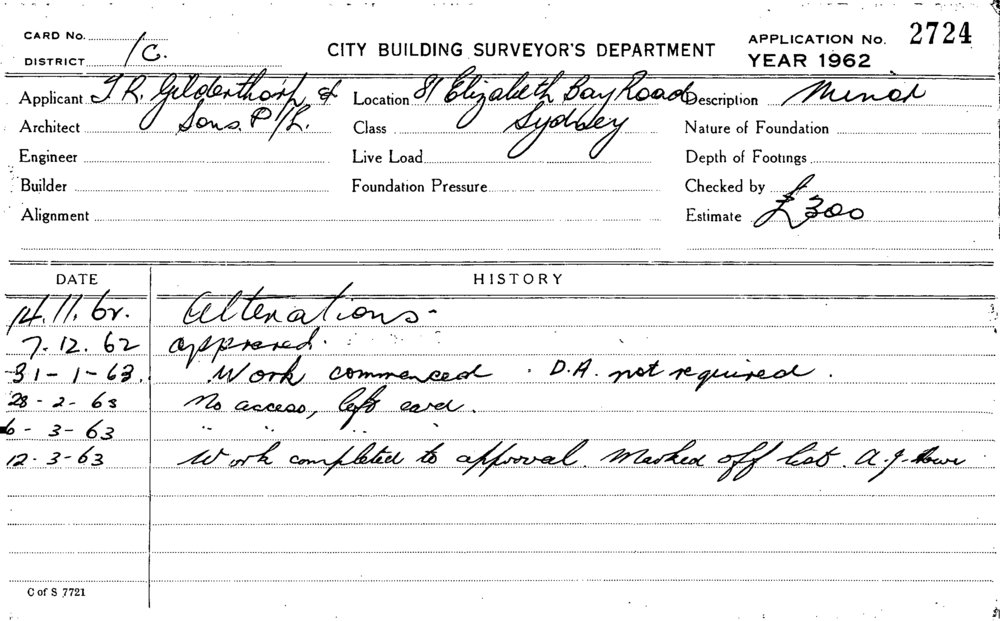 CARD No.
DISTRICT 1C.
CITY BUILDING SURVEYOR'S DEPARTMENT
APPLICATION No. 2724
YEAR 1962
Applicant T.R. Gilderthorp & Location 81 Elizabeth Bay Road Description Minor
Architect Sons. P/L. Class Sydney Nature of Foundation
Engineer Live Load Depth of Footings
Builder Foundation Pressure Checked by
Alignment Estimate £300
DATE HISTORY
14.11.62. Alterations-
7.12.62 approved.
31-1-63. Work commenced. D.A. not required.
28-2-63 No access, left card.
6-3-63 " " " "
12.3-63 Work completed to approval. Marked off list. A.J.
C of S 7721